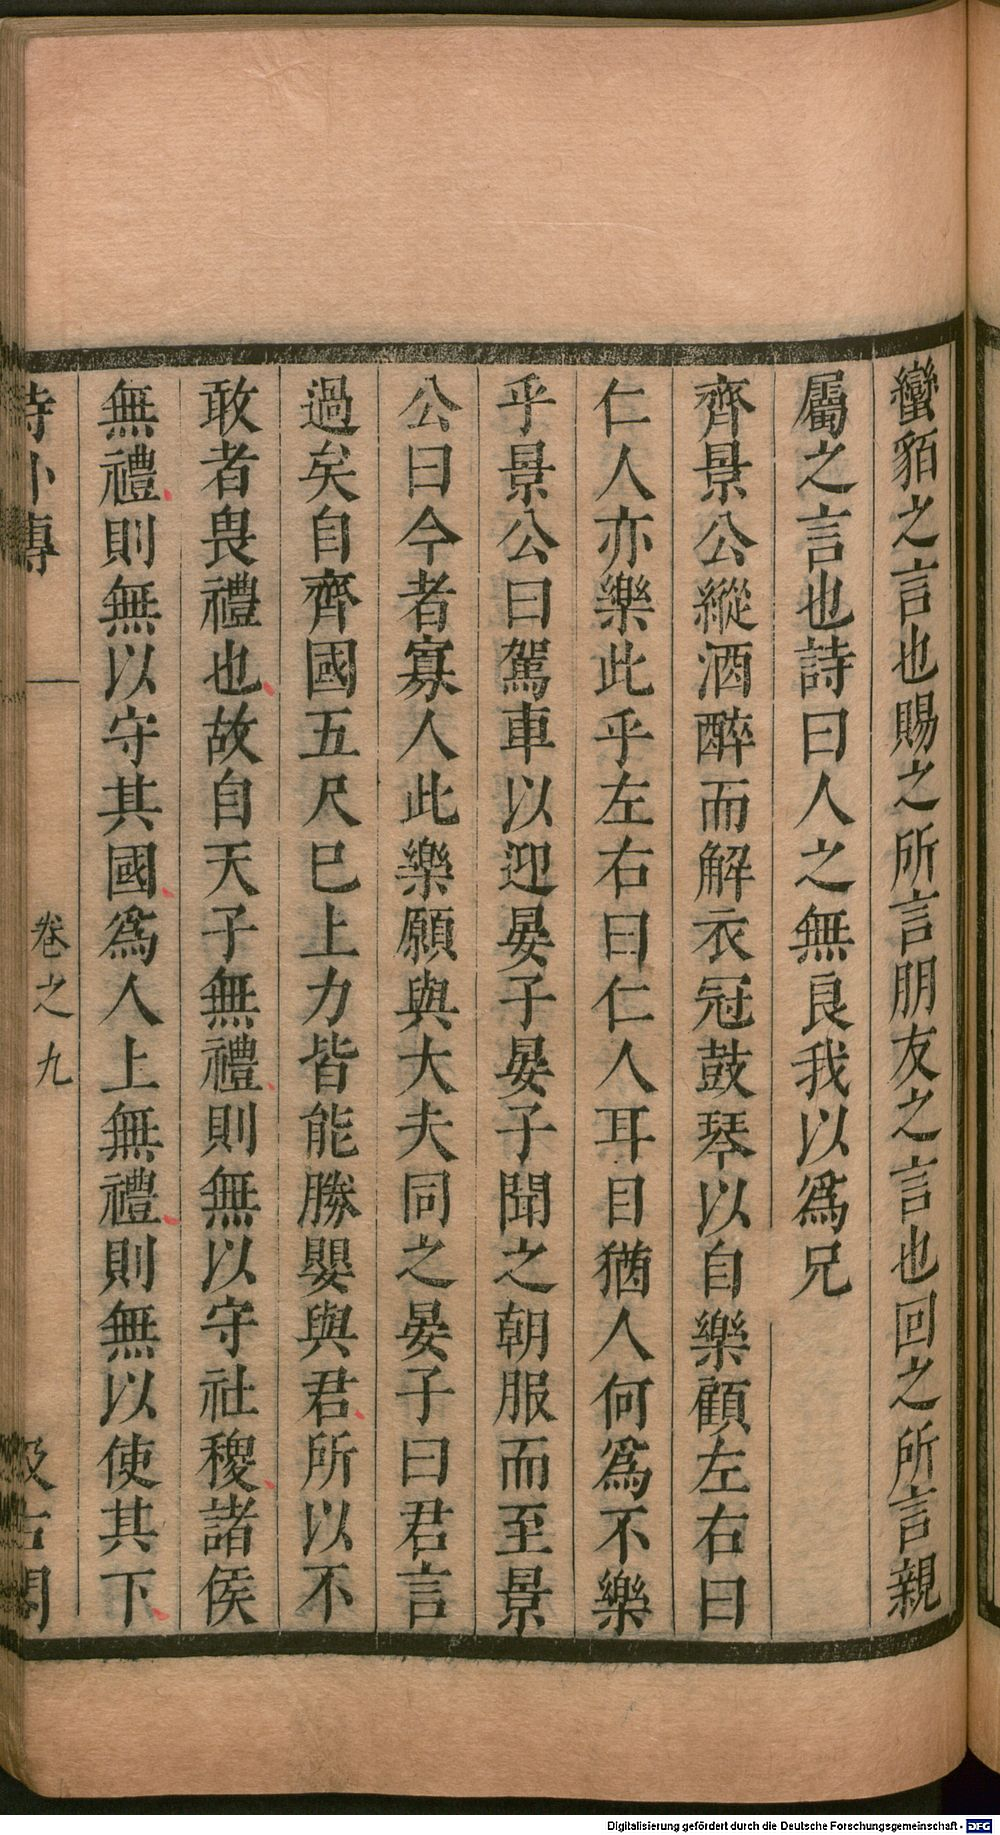 蠻貊之言也賜之所言朋友之言也回之所言親
屬之言也詩曰人之無良我以爲兄
齊景公縱酒醉而解衣冠鼓琴以自樂顧左右曰
仁人亦樂此乎左右曰仁人耳目猶人何爲不樂
乎景公曰駕車以迎晏子晏子聞之朝服而至景
公曰今者寡人此樂願與大夫同之晏子曰君言
過矣自齊國五尺巳上力皆能勝嬰與君所以不
敢者畏禮也故自天子無禮則無以守社稷諸侯
無禮則無以守其國爲人上無禮則無以使其下
詩外傳
卷之九
汲古閣
Digitalisierung gefördert durch die Deutsche Forschungsgemeinschaft - DFG